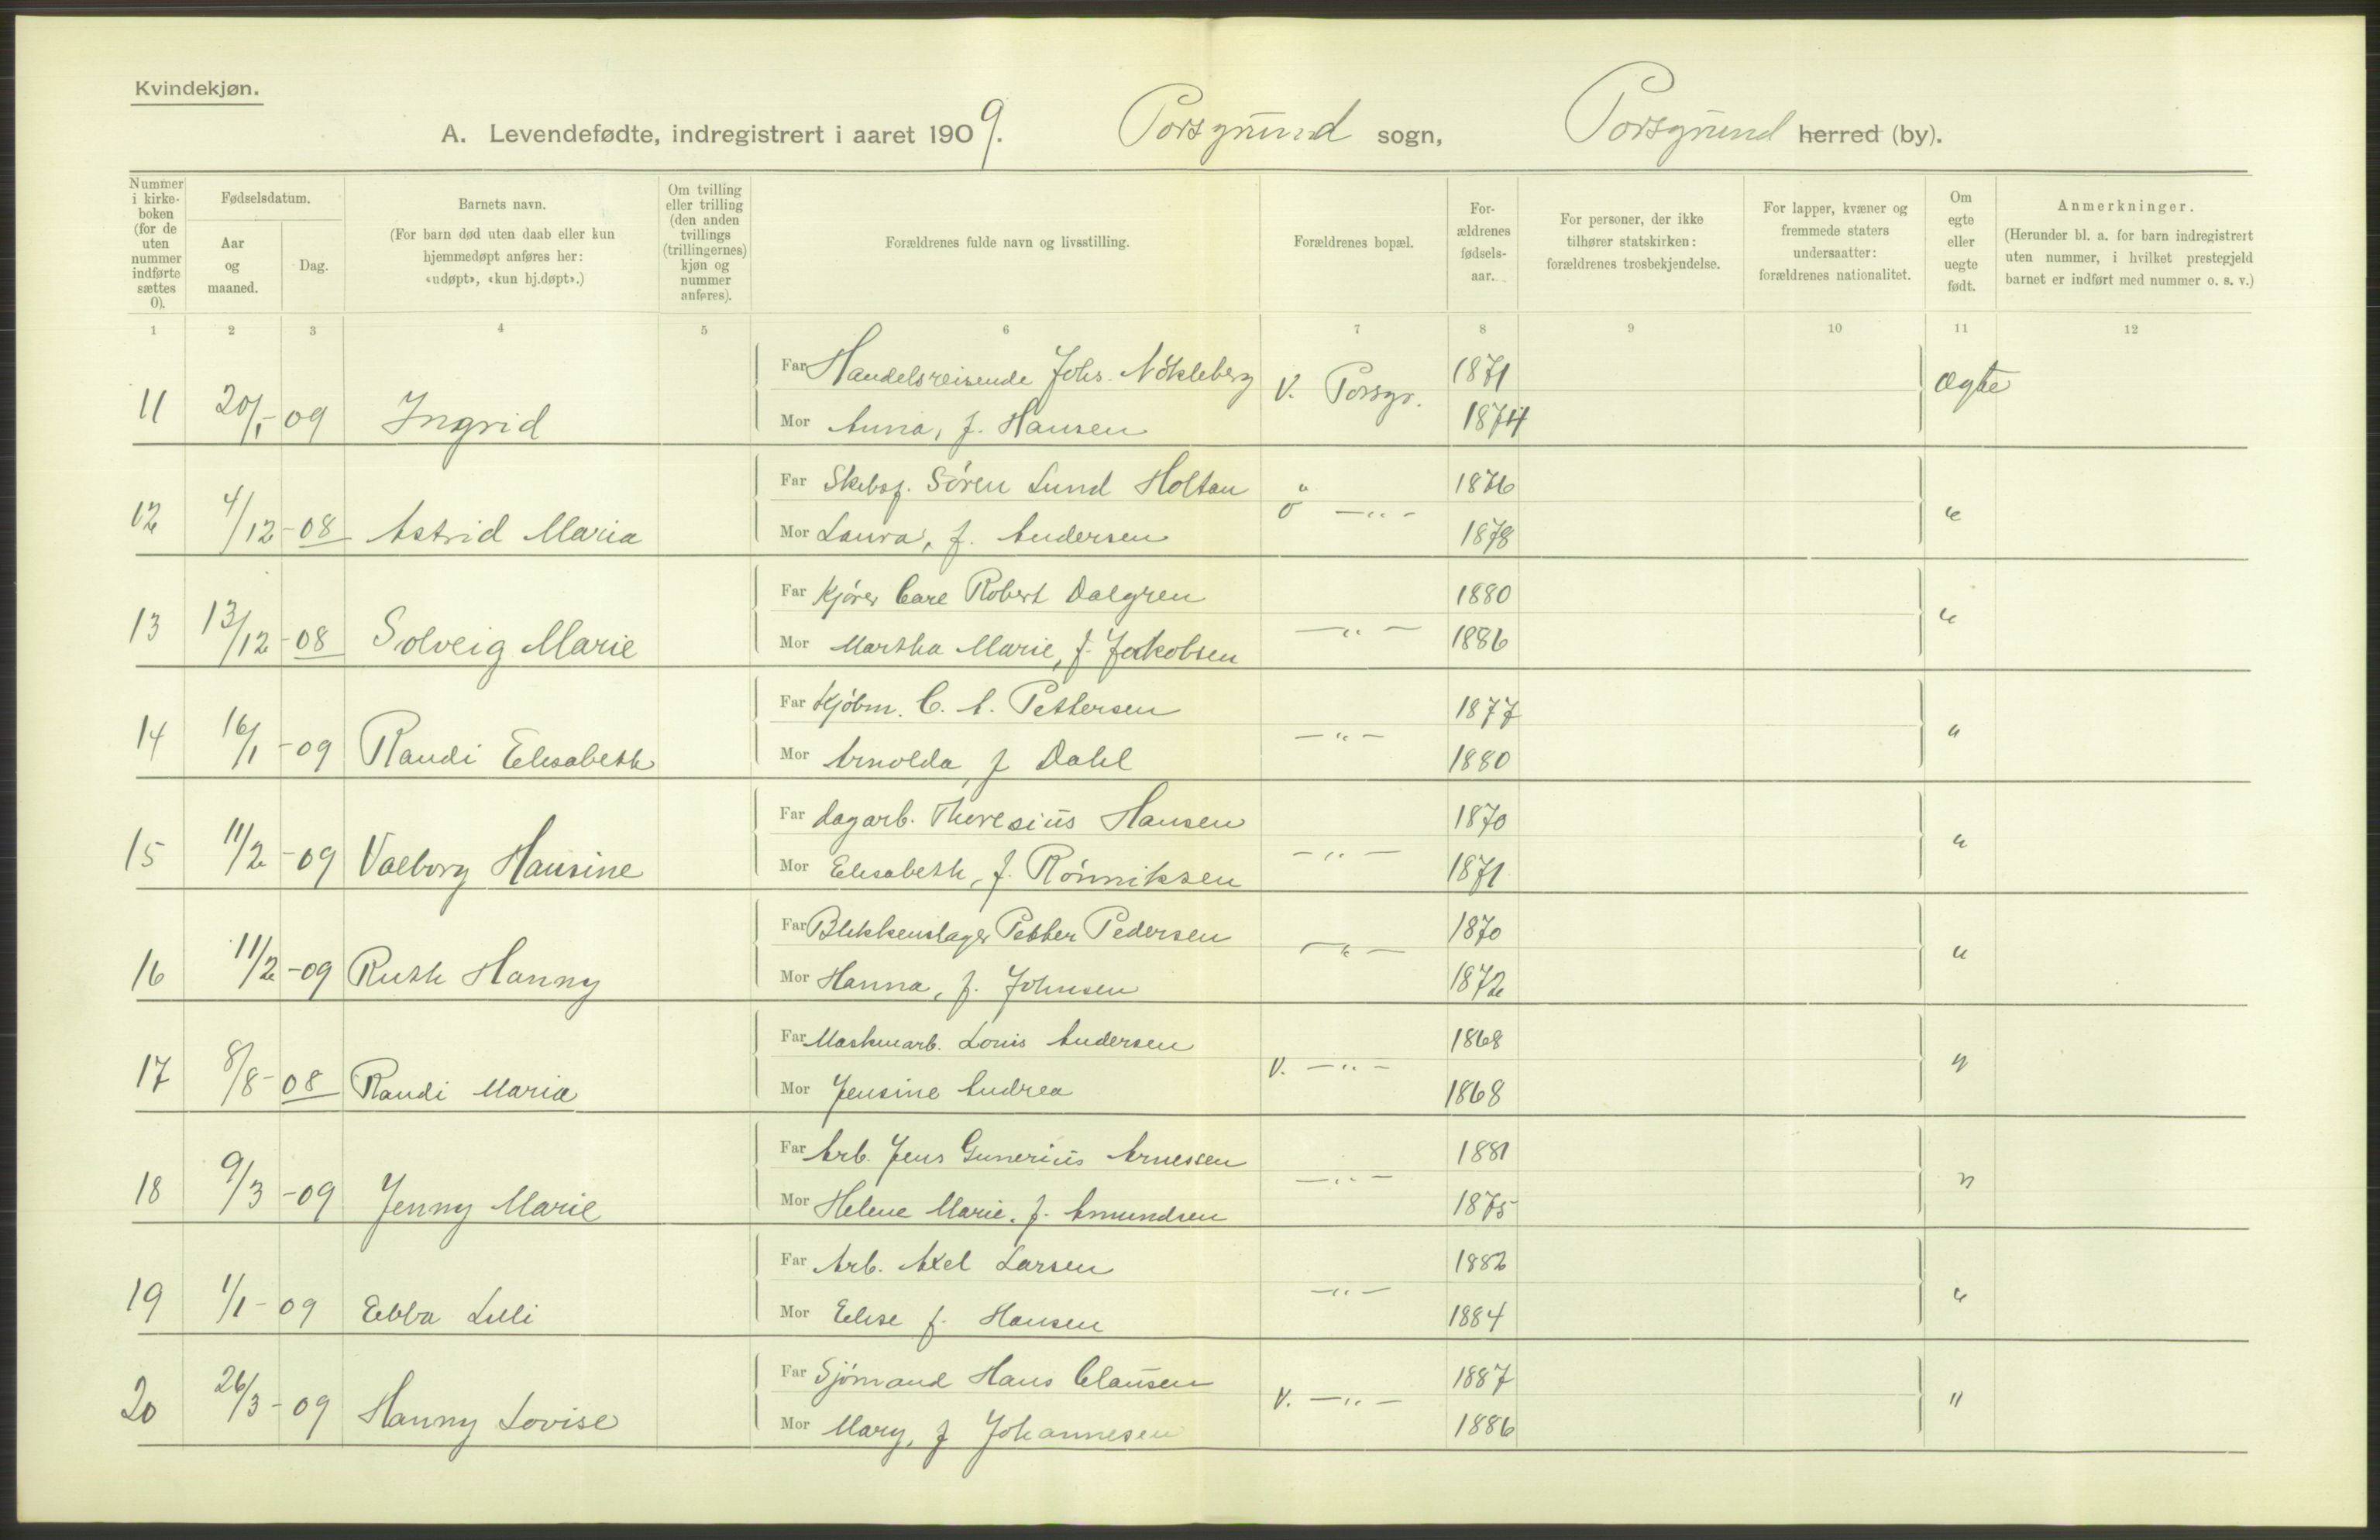 Kvindekjøn.
A. Levendefødte, indregistrert i aaret 1909. Porsgrund sogn, Porsgrund herred (by).
Nummer i kirkeboken (for de uten nummer indførte sættes 0).
Fødselsdatum.
Aar og maaned.
Dag.
Barnets navn.
(For barn død uten daab eller kun hjemmedøpt anføres her: «udøpt», «kun hj.døpt».)
Om tvilling eller trilling (den anden tvillings (trillingernes) kjøn og nummer anføres).
Forældrenes fulde navn og livsstilling.
Forældrenes bopæl.
For-ældrenes fødsels-aar.
For personer, der ikke tilhører statskirken: forældrenes trosbekjendelse.
For lapper, kvæner og fremmede staters undersaatter: forældrenes nationalitet.
Om egte eller uegte født.
Anmerkninger.
(Herunder bl. a. for barn indregistrert uten nummer, i hvilket prestegjeld barnet er indført med nummer o. s. v.)
1 2 3 4 5 6 7 8 9 10 11 12
Far Handelsreisende Johs. Nökleberg V. Porsgr. 1871 Ægte
11 20/1 - 09 Ingrid Mor Anna, f. Hansen 1874
Far Skibsf. Sören Lund Holtan Ö -"- 1876 "
12 4/12 - 08 Astrid Maria Mor Laura, f. Andersen 1878
Far Kjörer Carl Robert Dalgren 1880 "
13 13/12 - 08 Solveig Marie Mor Martha Marie, f. Jakobsen -"- 1886
Far Kjöbm. C. A. Pettersen 1877 "
14 16/1 - 09 Randi Elisabeth Mor Arnolda, f Dahl -"- 1880
Far Dagarb. Theresius Hansen 1870 "
15 11/2 - 09 Valborg Hansine Mor Elisabeth, f. Rönniksen -"- 1871
Far Blikkenslager Petter Pedersen -"- 1870 "
16 11/2 - 09 Ruth Hanny Mor Hanna, f. Johnsen 1872
Far Maskinarb. Louis Andersen V. -"- 1868 "
17 8/8 - 08 Randi Maria Mor Jensine Andrea 1868
Far Arb. Jens Gunerius Arnessen -"- 1881 "
18 9/3 - 09 Jenny Marie Mor Helene Marie, f. Amundsen 1875
Far Arb. Axel Larsen -"- 1882 "
19 1/1 - 09 Ebba Lilli Mor Elise f. Hansen 1884
Far Sjömand Hans Clausen V. -"- 1887 "
20 26/3 - 09 Hanny Lovise Mor Mary, f Johannesen 1886